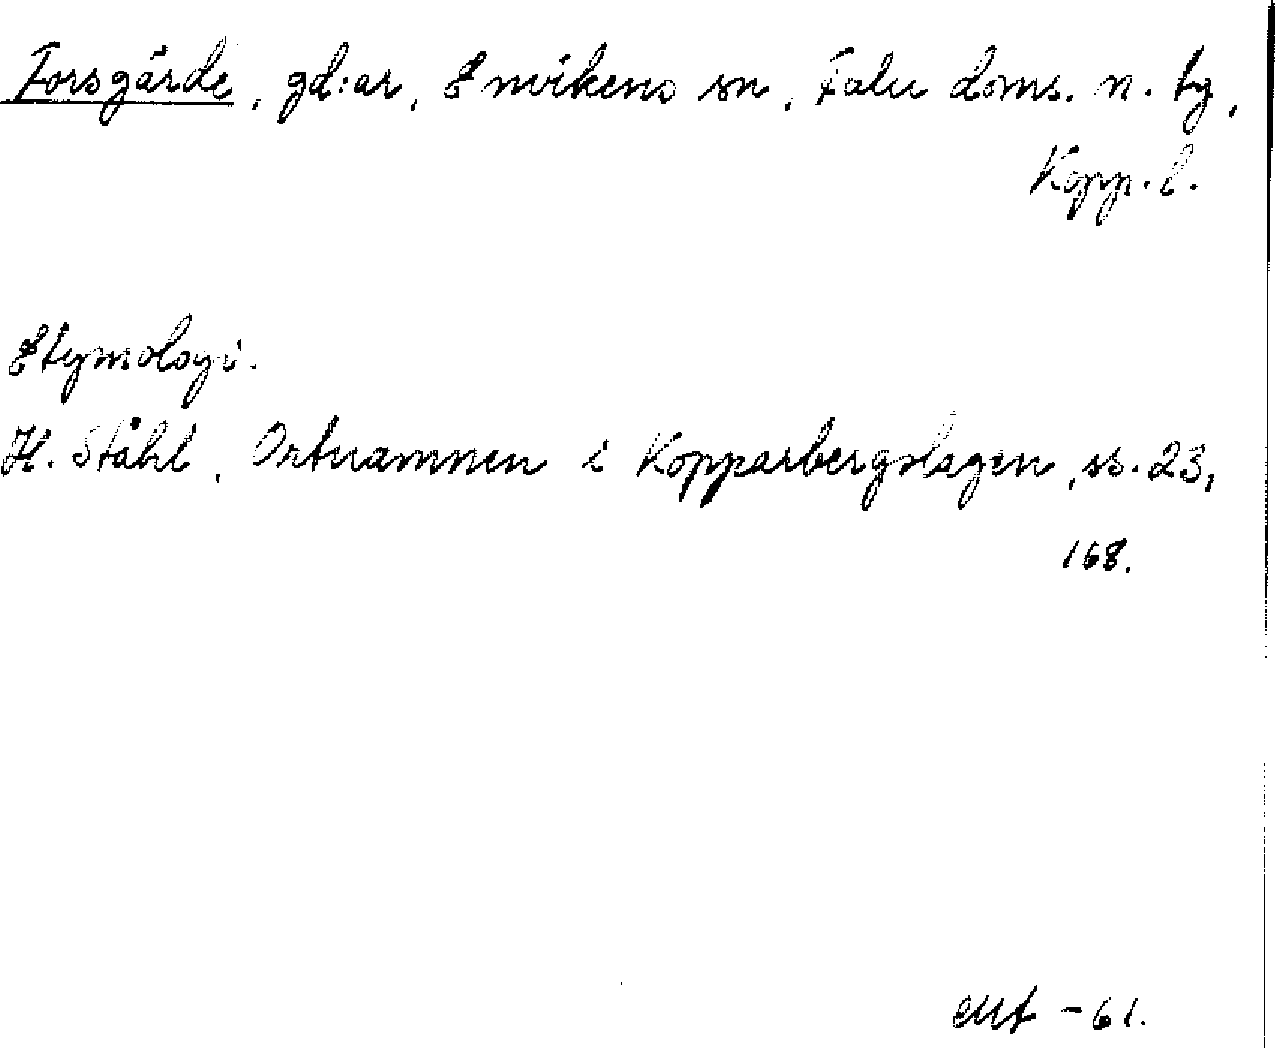 Forsgärde, gd:ar, Envikens sn, Falu doms. n. tg,
Kopp. l.
Etymologi.
H. Ståhl, Ortnamnen i Kopparbergslagen, ss. 23,
168.
-61.